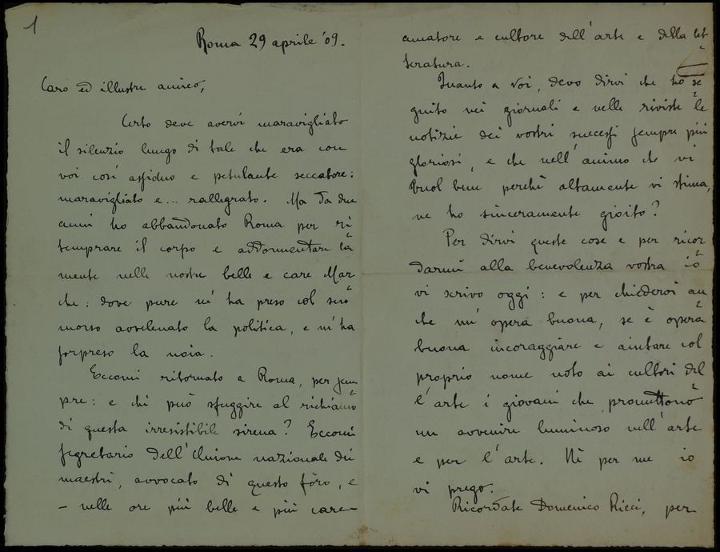 1
Roma 29 aprile '09.
Caro ed illustre amico,
Certo deve avervi maravigliato
il silenzio lungo di tale che era con
voi così assiduo e petulante seccatore:
maravigliato e... rallegrato. Ma da due
anni ho abbandonato Roma per ri
temprare il corpo e addormentare la
mente nelle nostre belle e care Mar
che: dove pure m'ha preso col suo
morso avvelenato la politica, e m'ha
sorpreso la noia.
Eccomi ritornato a Roma, per sem
pre: e chi può sfuggire al richiamo
di questa irresistibile sirena? Eccomi
segretario dell'Unione nazionale dei
maestri, avvocato di questo foro, e
- nelle ore più belle e più care-
amatore e cultore dell'arte e della let
teratura.
Quanto a Voi, devo dirvi che ho se
guito nei giornali e nelle riviste le
notizie dei vostri successi sempre più
gloriosi, e che nell'animo di vi
vuol bene perchè altamente vi stima,
ne ho sinceramente gioito?
Per dirvi queste cose e per ricor
darmi alla benevolenza vostra io
vi scrivo oggi: e per chiedervi an
che un'opera buona, se è opera
buona incoraggiare e aiutare col
proprio nome noto ai cultori del
l'arte i giovani che promettono
un avvenire luminoso nell'arte
e per l'arte. Nè per me io
vi prego.
Ricordate Domenico Ricci, per